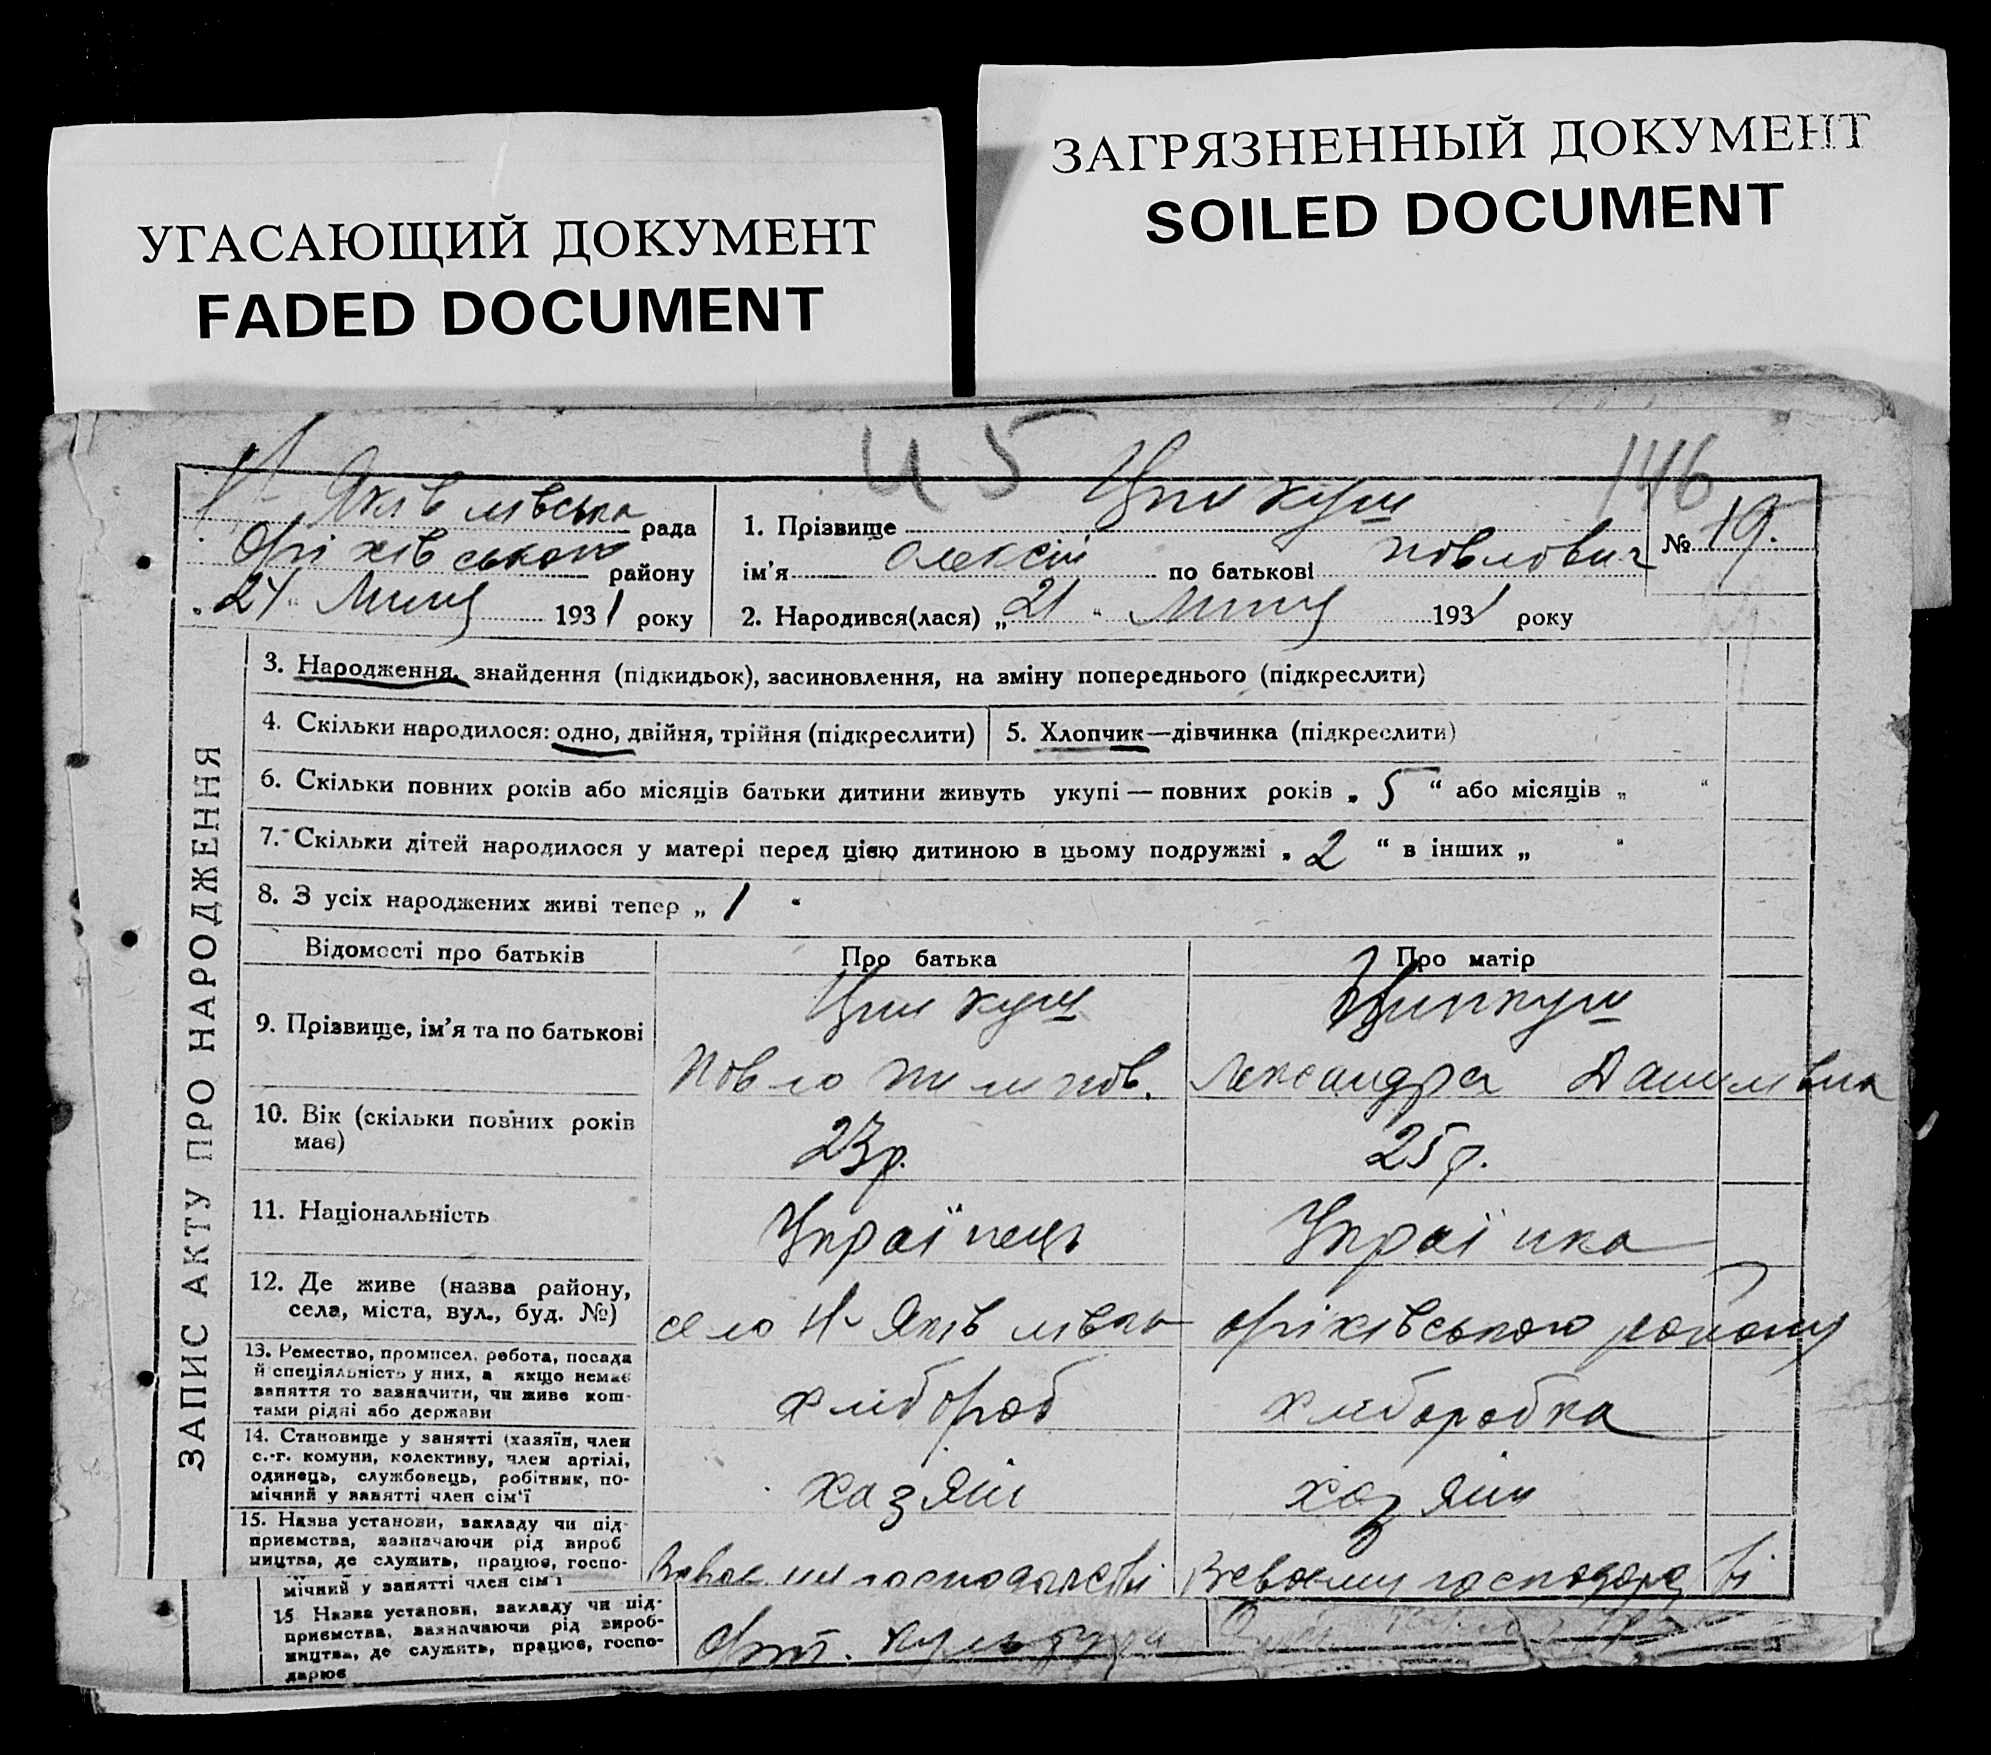 УГАСАЮЩИЙ ДОКУМЕНТ
FADED DOCUMENT
ЗАГРЯЗНЕННЫЙ ДОКУМЕНТ
SOILED DOCUMENT
45
146
Н-Яківлівська рада
Оріхівського району
„24“ Липця 1931 року
1. Прізвище Ципкуш
ім'я Олексій по батькові Повлович
№ 19.
2. Народився(лася) „21“ Липця 1931 року
ЗАПИС АКТУ ПРО НАРОДЖЕННЯ
3. Народження, знайдення (підкидьок), засиновлення, на зміну попереднього (підкреслити)
4. Скільки народилося: одно, двійня, трійня (підкреслити)
5. Хлопчик—дівчинка (підкреслити)
6. Скільки повних років або місяців батьки дитини живуть укупі — повних років „5“ або місяців „ “
7. Скільки дітей народилося у матері перед цією дитиною в цьому подружжі „2“ в інших „ “
8. З усіх народжених живі тепер „1“
Відомості про батьків Про батька Про матір
9. Прізвище, ім'я та по батькові
Ципкуш
Повло Пилипов.
Ципкуш
Лександра Данилівна
10. Вік (скільки повних років
має)
23р.
25р.
11. Національність
Українець
Українка
12. Де живе (назва району,
села, міста, вул., буд. №)
село Н-Яківлівка Оріхівського району
13. Ремество, промисел, робота, посада
й спеціяльність у них, а якщо немає
заняття то зазначити, чи живе кош-
тами рідні або держави
хлібороб
хліборобка
14. Становище у занятті (хазяїн, член
с.-г. комуни, колективу, член артілі,
одинець, службовець, робітник, по-
мічний у занятті член сім'ї
хазяїн
хазяїн
15. Назва установи, закладу чи під-
приємства, зазначаючи рід вироб
ництва, де служить, працює, госпо-
господарстві
Всвоєму господарстві
мічний у занятті член сім'ї
15 Назва установи, закладу чи під-
приємства, зазначаючи рід вироб-
ництва, де служить, працює, госпо-
дарює
культура